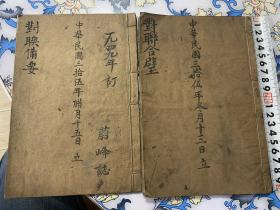 對聯備要
中華民國三拾五年腊月十五日立
一九四九年訂
蔚峰誌
對聯合璧
中華民國三拾伍年冬月十二日立